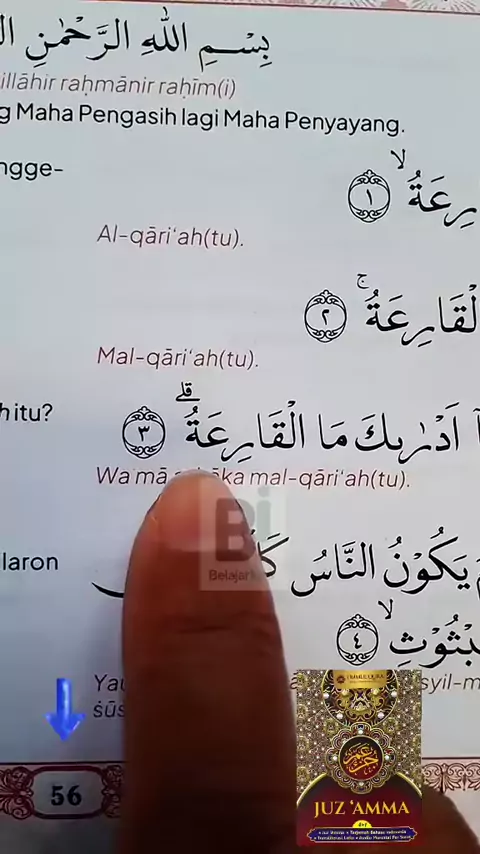 بِسْمِ اللّٰهِ الرَّحْمٰنِ
illāhir raḥmānir raḥīm(i)
g Maha Pengasih lagi Maha Penyayang.
ngge-
رِعَةُ ۙ ١
Al-qāri‘ah(tu).
لْقَارِعَةُ ۚ ٢
Mal-qāri‘ah(tu).
h itu?
اَدْرٰىكَ مَا الْقَارِعَةُ ۗ ٣
Wa mā ka mal-qāri‘ah(tu).
Bi
Belajar
laron
يَكُوْنُ النَّاسُ
بْثُوْثِ ۙ ٤
syil-m
56
JUZ 'AMMA